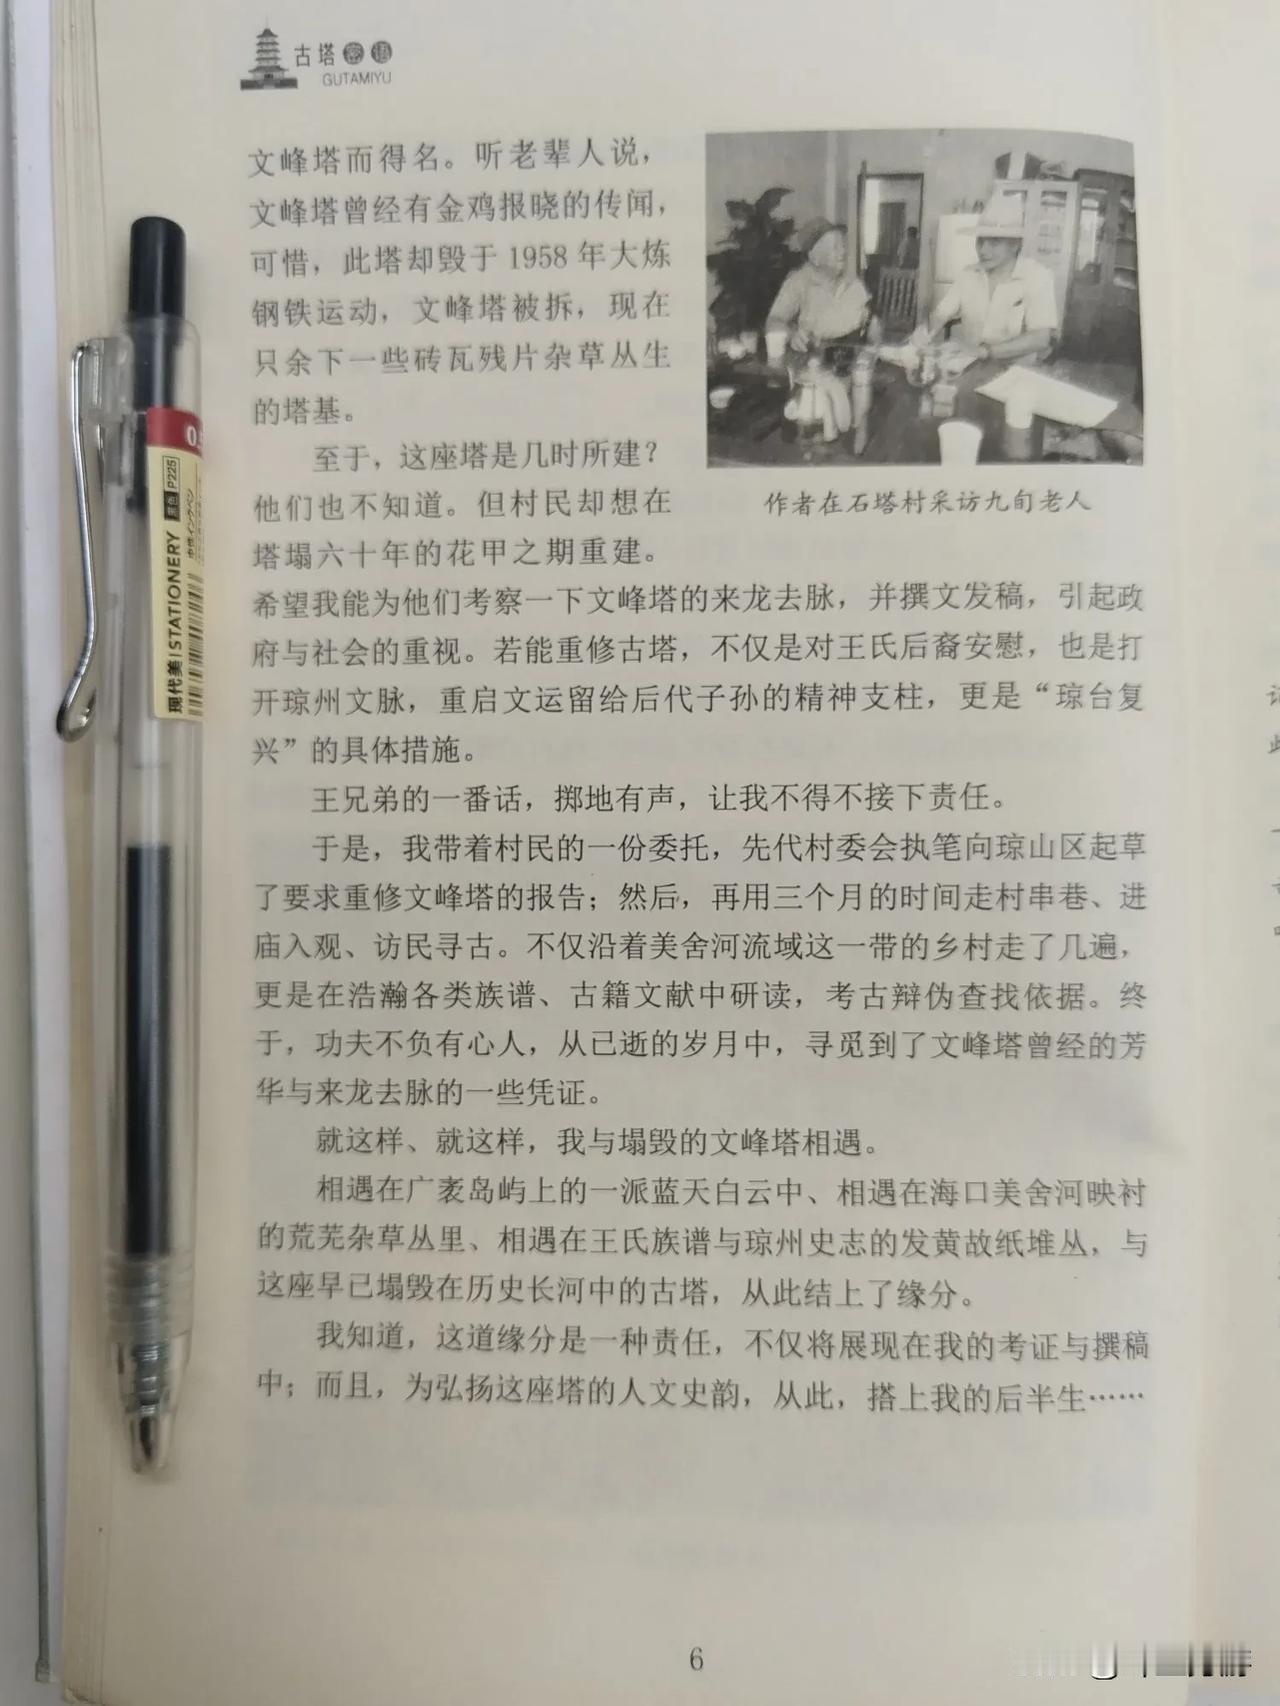 古塔密语
GUTAMIYU
文峰塔而得名。听老辈人说，
文峰塔曾经有金鸡报晓的传闻，
可惜，此塔却毁于 1958 年大炼
钢铁运动，文峰塔被拆，现在
只余下一些砖瓦残片杂草丛生
的塔基。
至于，这座塔是几时所建？
他们也不知道。但村民却想在
塔塌六十年的花甲之期重建。
作者在石塔村采访九旬老人
希望我能为他们考察一下文峰塔的来龙去脉，并撰文发稿，引起政
府与社会的重视。若能重修古塔，不仅是对王氏后裔安慰，也是打
开琼州文脉，重启文运留给后代子孙的精神支柱，更是“琼台复
兴”的具体措施。
王兄弟的一番话，掷地有声，让我不得不接下责任。
于是，我带着村民的一份委托，先代村委会执笔向琼山区起草
了要求重修文峰塔的报告；然后，再用三个月的时间走村串巷、进
庙入观、访民寻古。不仅沿着美舍河流域这一带的乡村走了几遍，
更是在浩瀚各类族谱、古籍文献中研读，考古辩伪查找依据。终
于，功夫不负有心人，从已逝的岁月中，寻觅到了文峰塔曾经的芳
华与来龙去脉的一些凭证。
就这样、就这样，我与塌毁的文峰塔相遇。
相遇在广袤岛屿上的一派蓝天白云中、相遇在海口美舍河映衬
的荒芜杂草丛里、相遇在王氏族谱与琼州史志的发黄故纸堆丛，与
这座早已塌毁在历史长河中的古塔，从此结上了缘分。
我知道，这道缘分是一种责任，不仅将展现在我的考证与撰稿
中；而且，为弘扬这座塔的人文史韵，从此，搭上我的后半生……
6
现代美|STATIONERY
黑色 P225